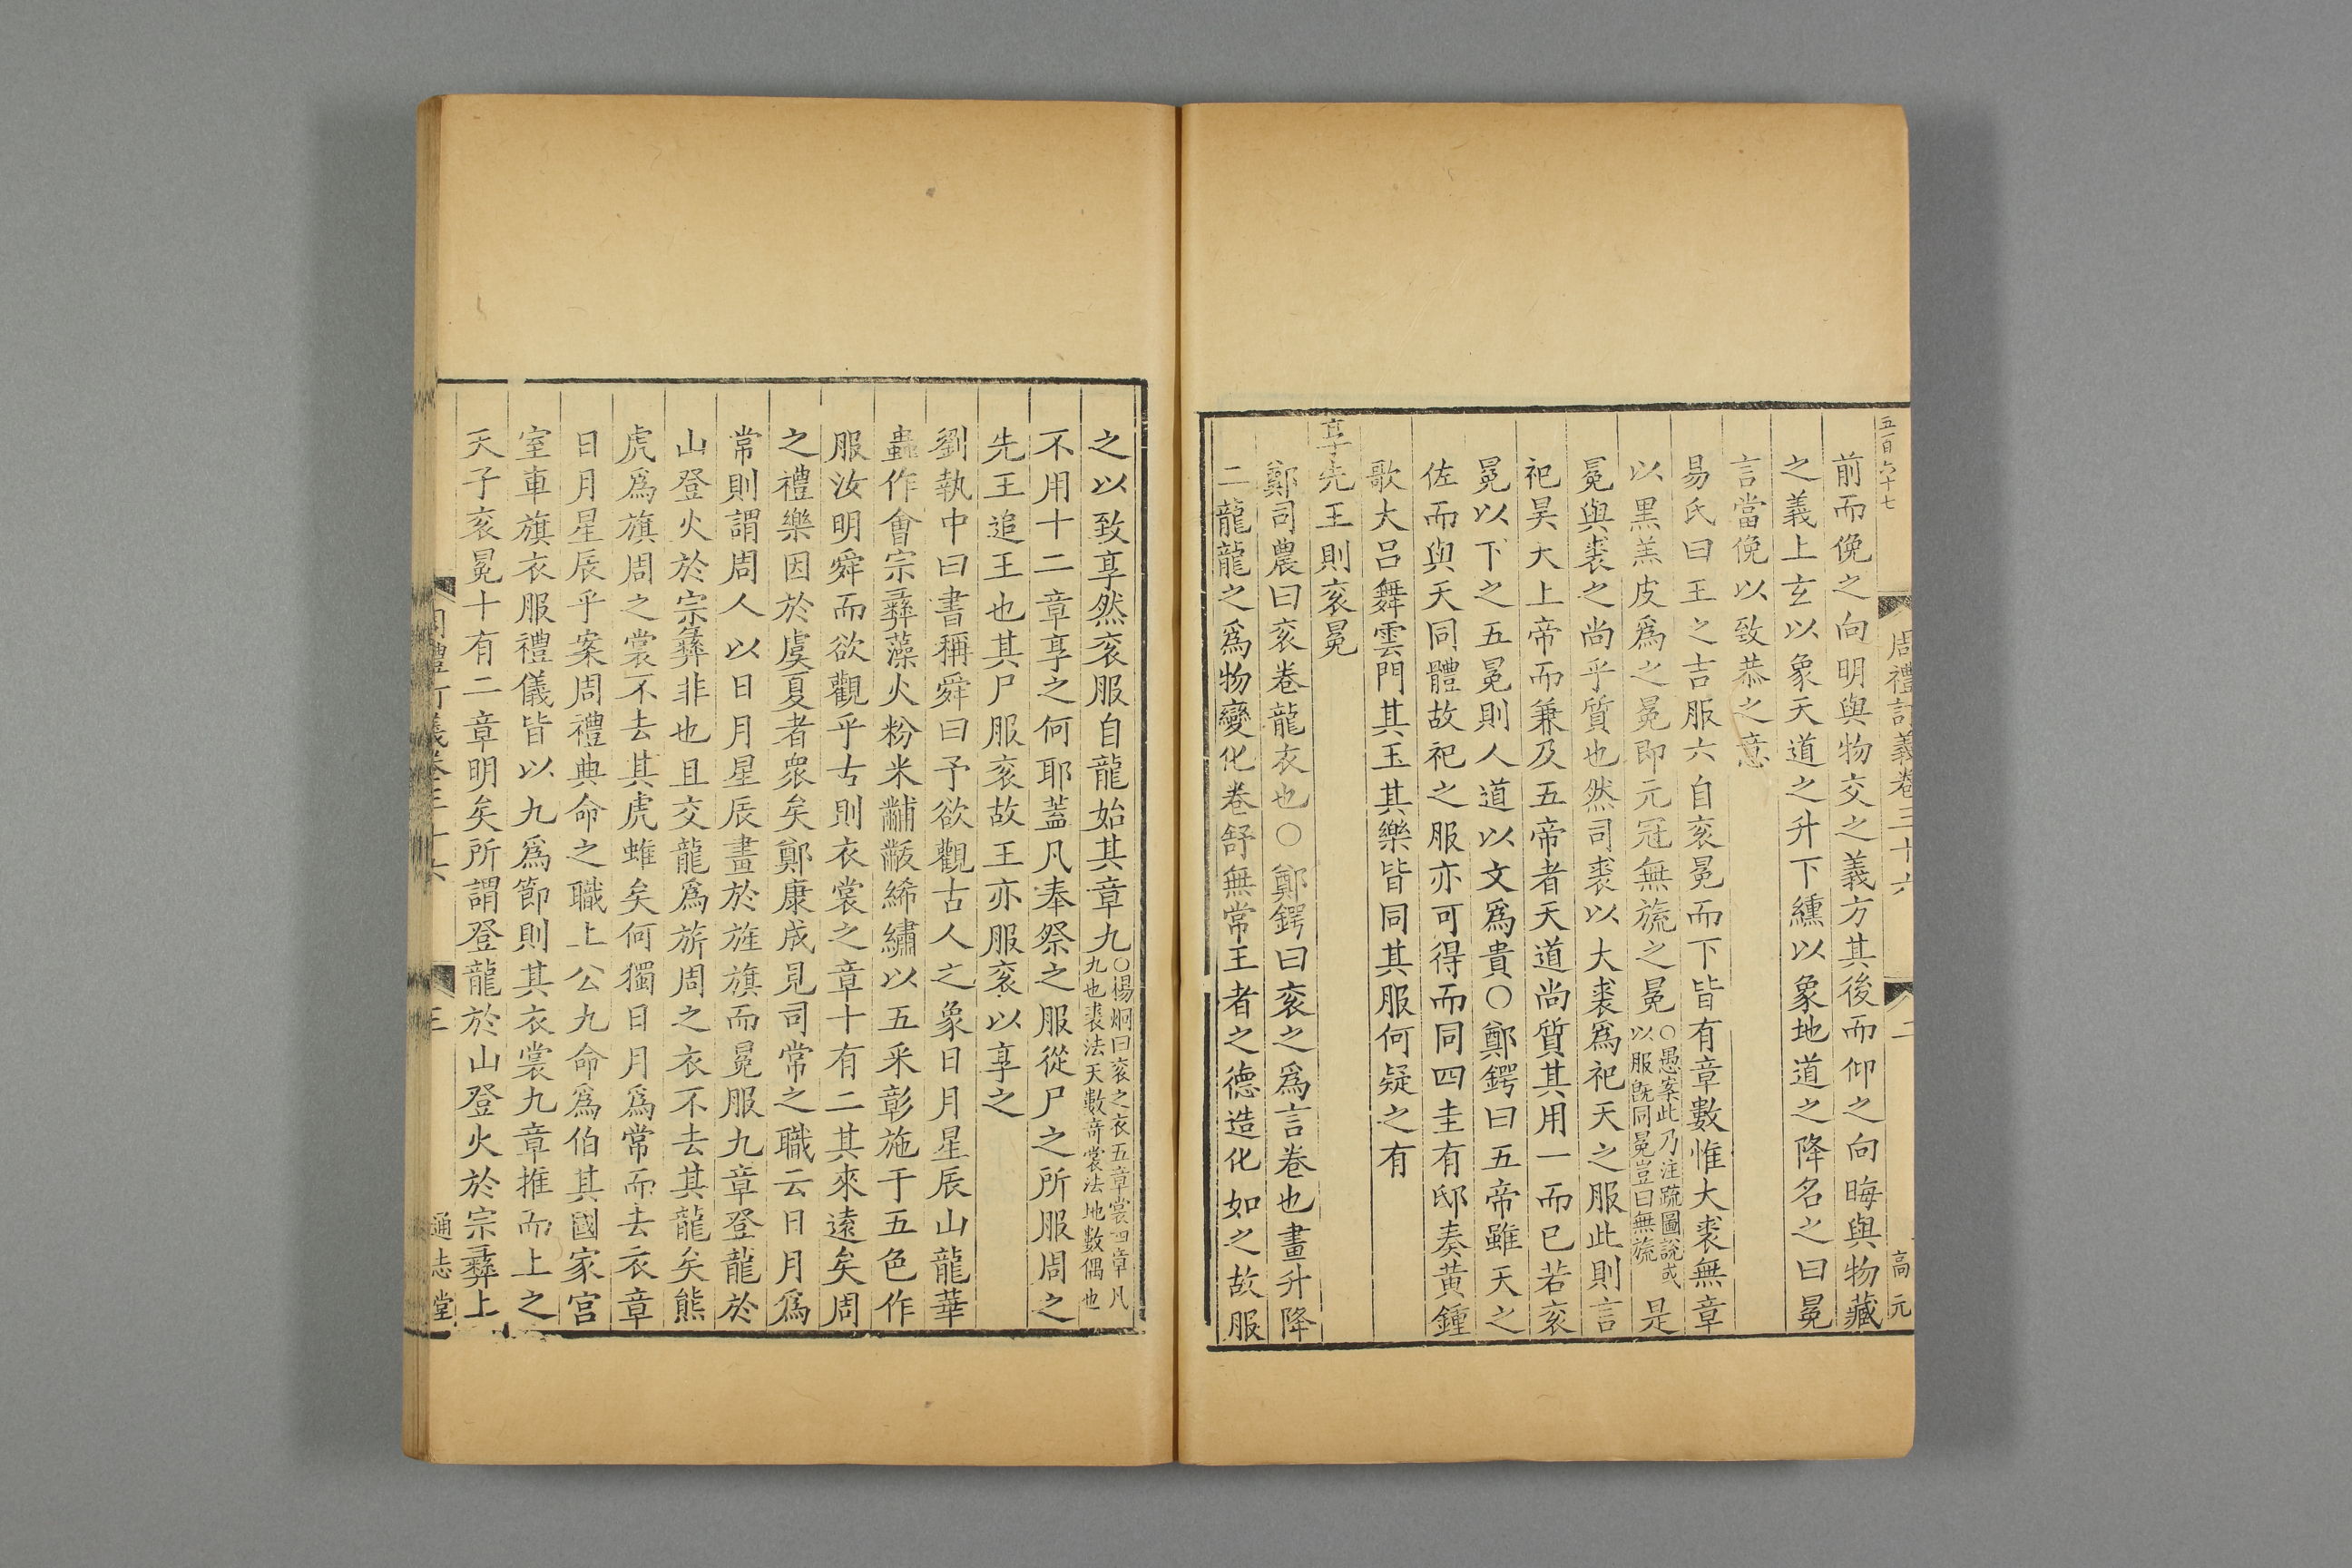 五百六十七
周禮訂義卷三十六
二
高元
前而俛之向明與物交之義方其後而仰之向晦與物藏
之義上玄以象天道之升下纁以象地道之降名之曰冕
言當俛以致恭之意
易氏曰王之吉服六自衮冕而下皆有章數惟大裘無章
以黑羔皮爲之冕即元冠無旒之冕○愚案此乃注疏圖說或以服旣同冕豈曰無旒是
冕與裘之尚乎質也然司裘以大裘爲祀天之服此則言
祀昊天上帝而兼及五帝者天道尚質其用一而已若衮
冕以下之五冕則人道以文爲貴○鄭鍔曰五帝雖天之
佐而與天同體故祀之服亦可得而同四圭有邸奏黃鍾
歌大吕舞雲門其玉其樂皆同其服何疑之有
享先王則衮冕
鄭司農曰衮卷龍衣也○鄭鍔曰衮之爲言卷也畫升降
二龍龍之爲物變化卷舒無常王者之德造化如之故服
之以致享然衮服自龍始其章九○楊烱曰衮之衣五章裳四章凡九也裘法天數奇裳法地數偶也
不用十二章享之何耶蓋凡奉祭之服從尸之所服周之
先王追王也其尸服衮故王亦服衮以享之
劉執中曰書稱舜曰予欲觀古人之象日月星辰山龍華
蟲作會宗彝藻火粉米黼黻絺繡以五采彰施于五色作
服汝明舜而欲觀乎古則衣裳之章十有二其來遠矣周
之禮樂因於虞夏者衆矣鄭康成見司常之職云日月爲
常則謂周人以日月星辰畫於旌旗而冕服九章登龍於
山登火於宗彝非也且交龍爲旂周之衣不去其龍矣熊
虎爲旗周之裳不去其虎蜼矣何獨日月爲常而去衣章
日月星辰乎案周禮典命之職上公九命爲伯其國家宫
室車旗衣服禮儀皆以九爲節則其衣裳九章推而上之
天子衮冕十有二章明矣所謂登龍於山登火於宗彝上
周禮訂義卷三十六
三
通志堂